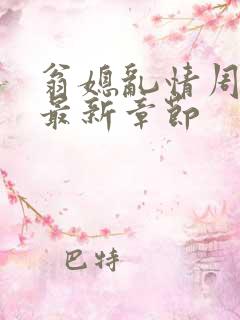 翁媳乱情周
最新章节
巴特